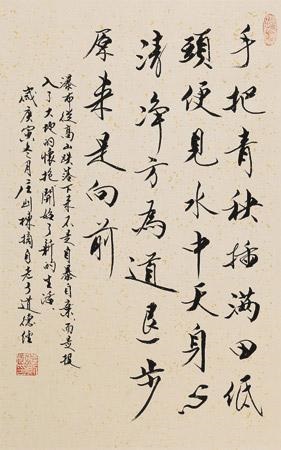 手把青秧插满田低
頭便見水中天身心
清净方為道退步
原来是向前
瀑布從高山跌落下来不是自暴自棄而是投
入了大地的懷抱開始了新的生活
歲庚寅冬月庄則棟摘自老子道德經